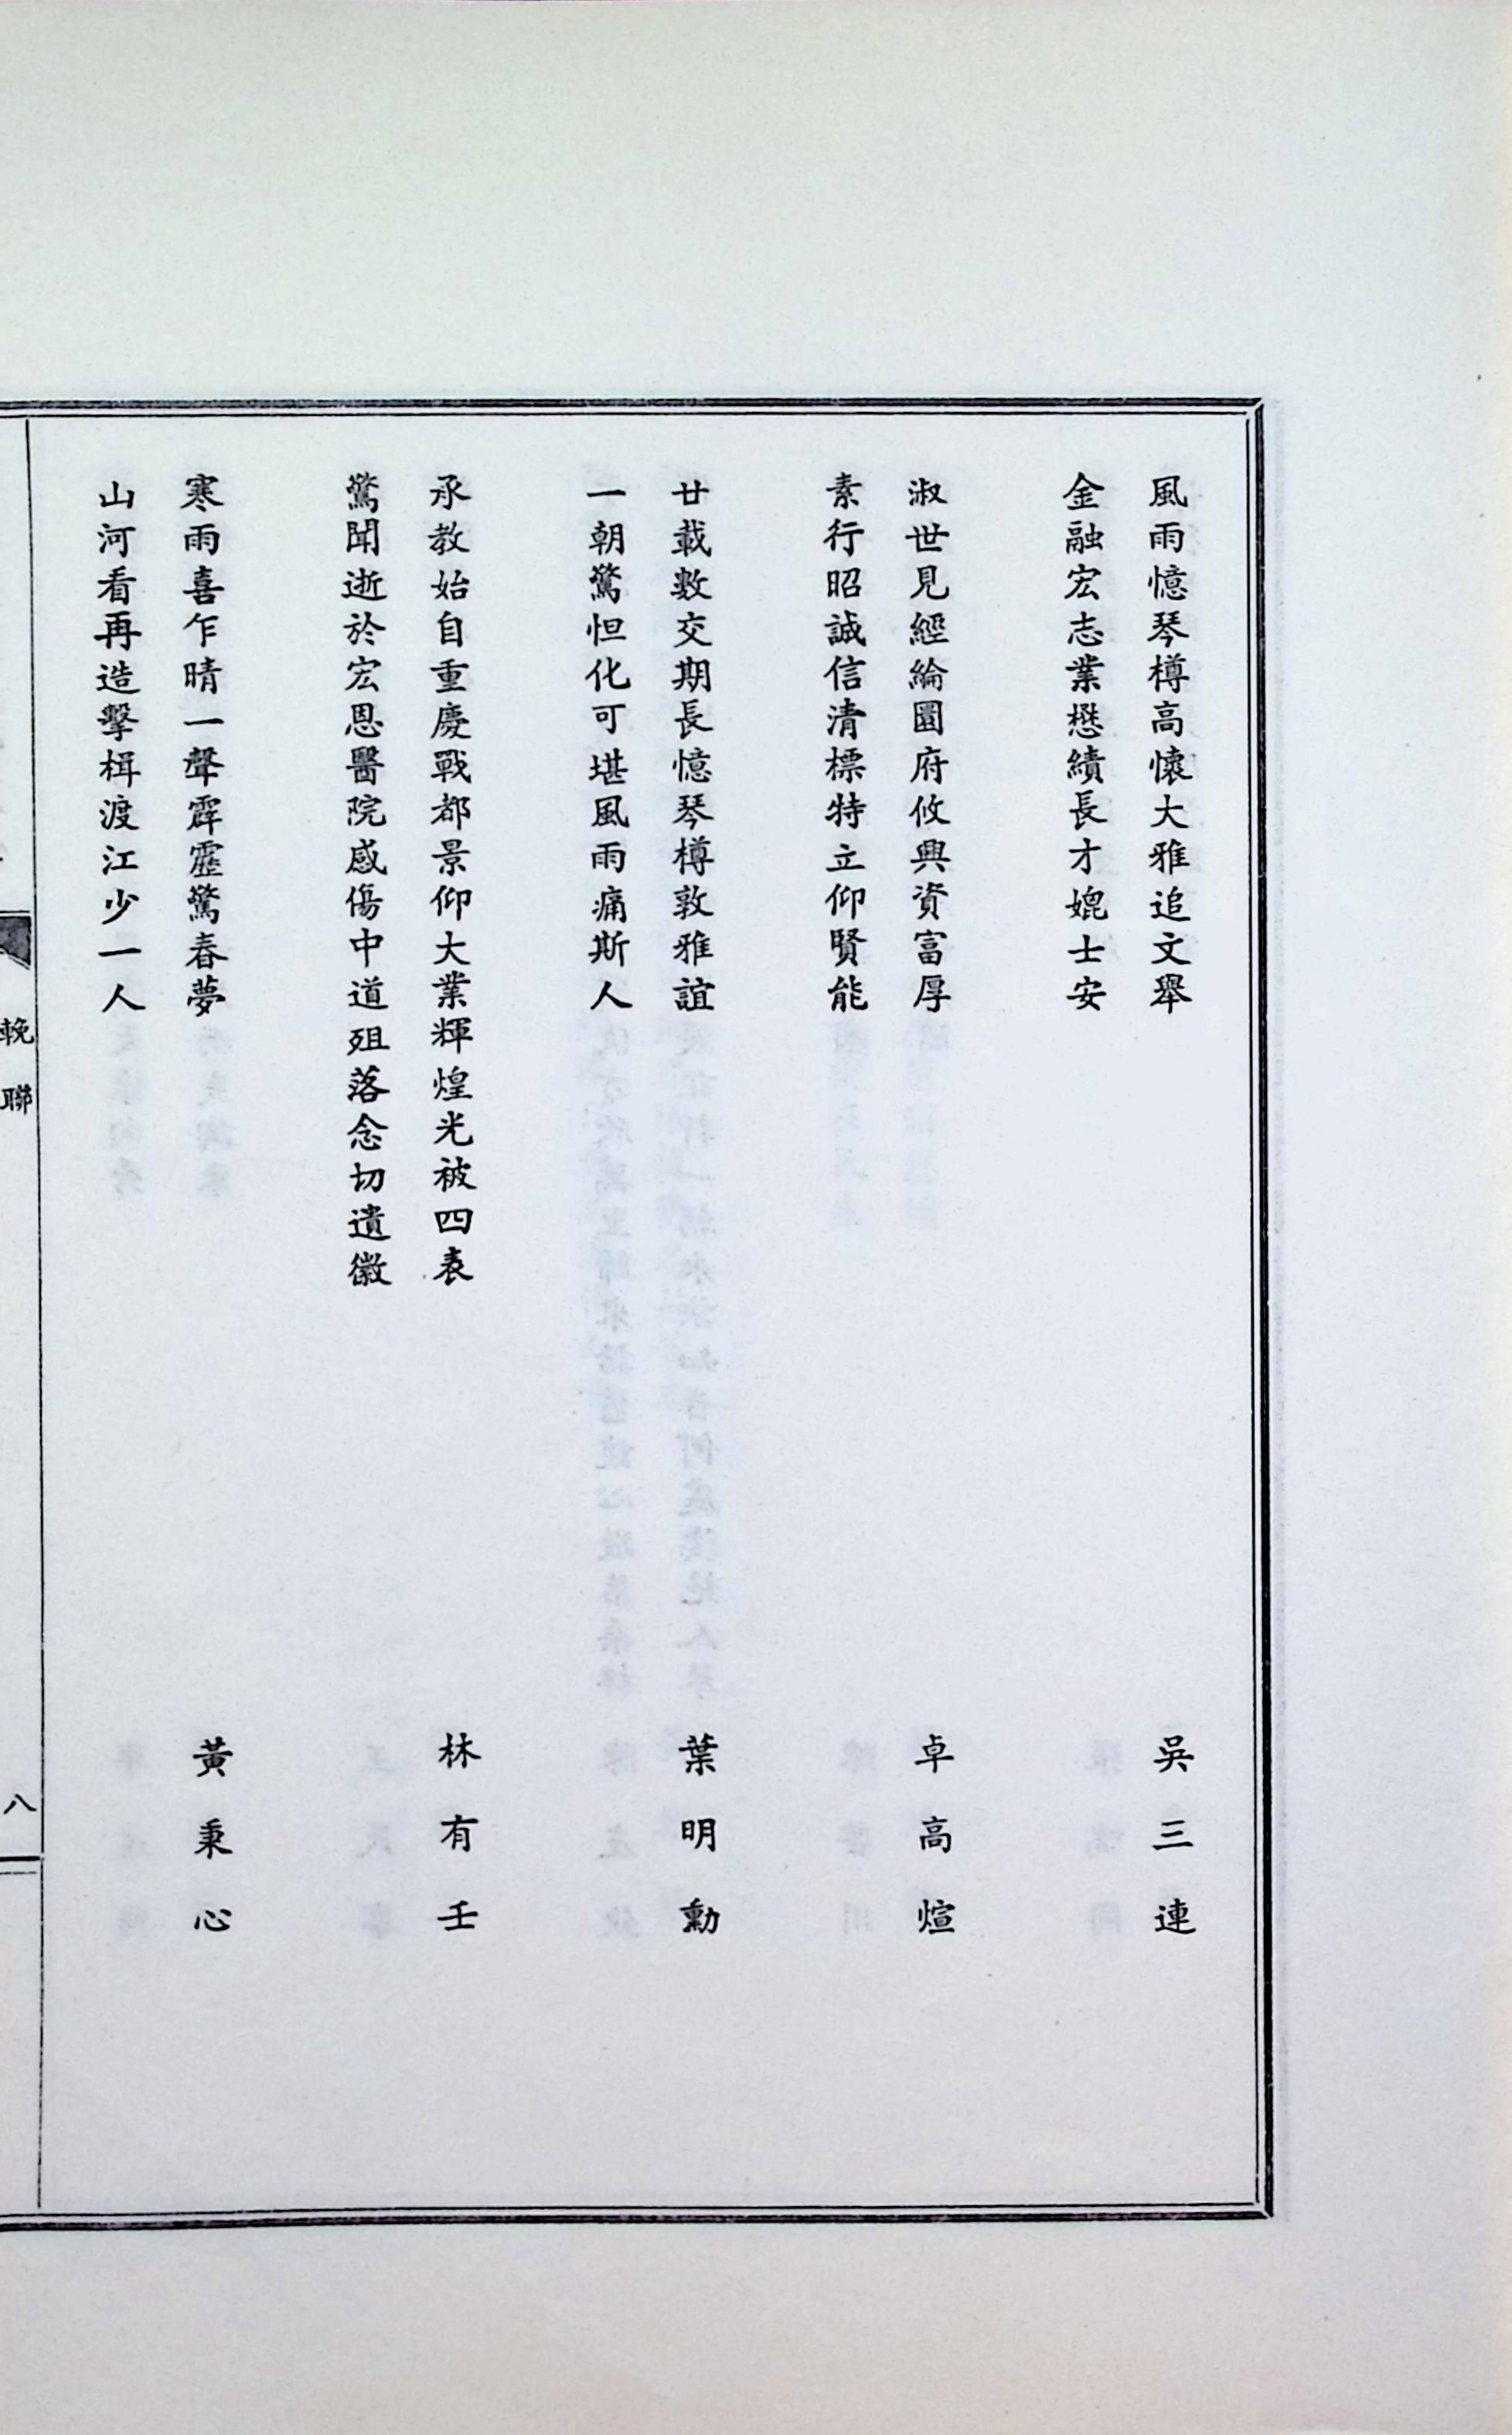 風雨憶琴樽高懷大雅追文舉
吳三連
金融宏志業懋績長才媲士安
淑世見經綸圜府攸興資富厚
卓高煊
素行昭誠信清標特立仰賢能
廿載數交期長憶琴樽敦雅誼
葉明勳
一朝驚怛化可堪風雨痛斯人
承教始自重慶戰都景仰大業輝煌光被四表
林有壬
驚聞逝於宏恩醫院感傷中道殂落念切遺徽
寒雨喜乍晴一聲霹靂驚春夢
黃秉心
山河看再造擊楫渡江少一人
輓聯
八